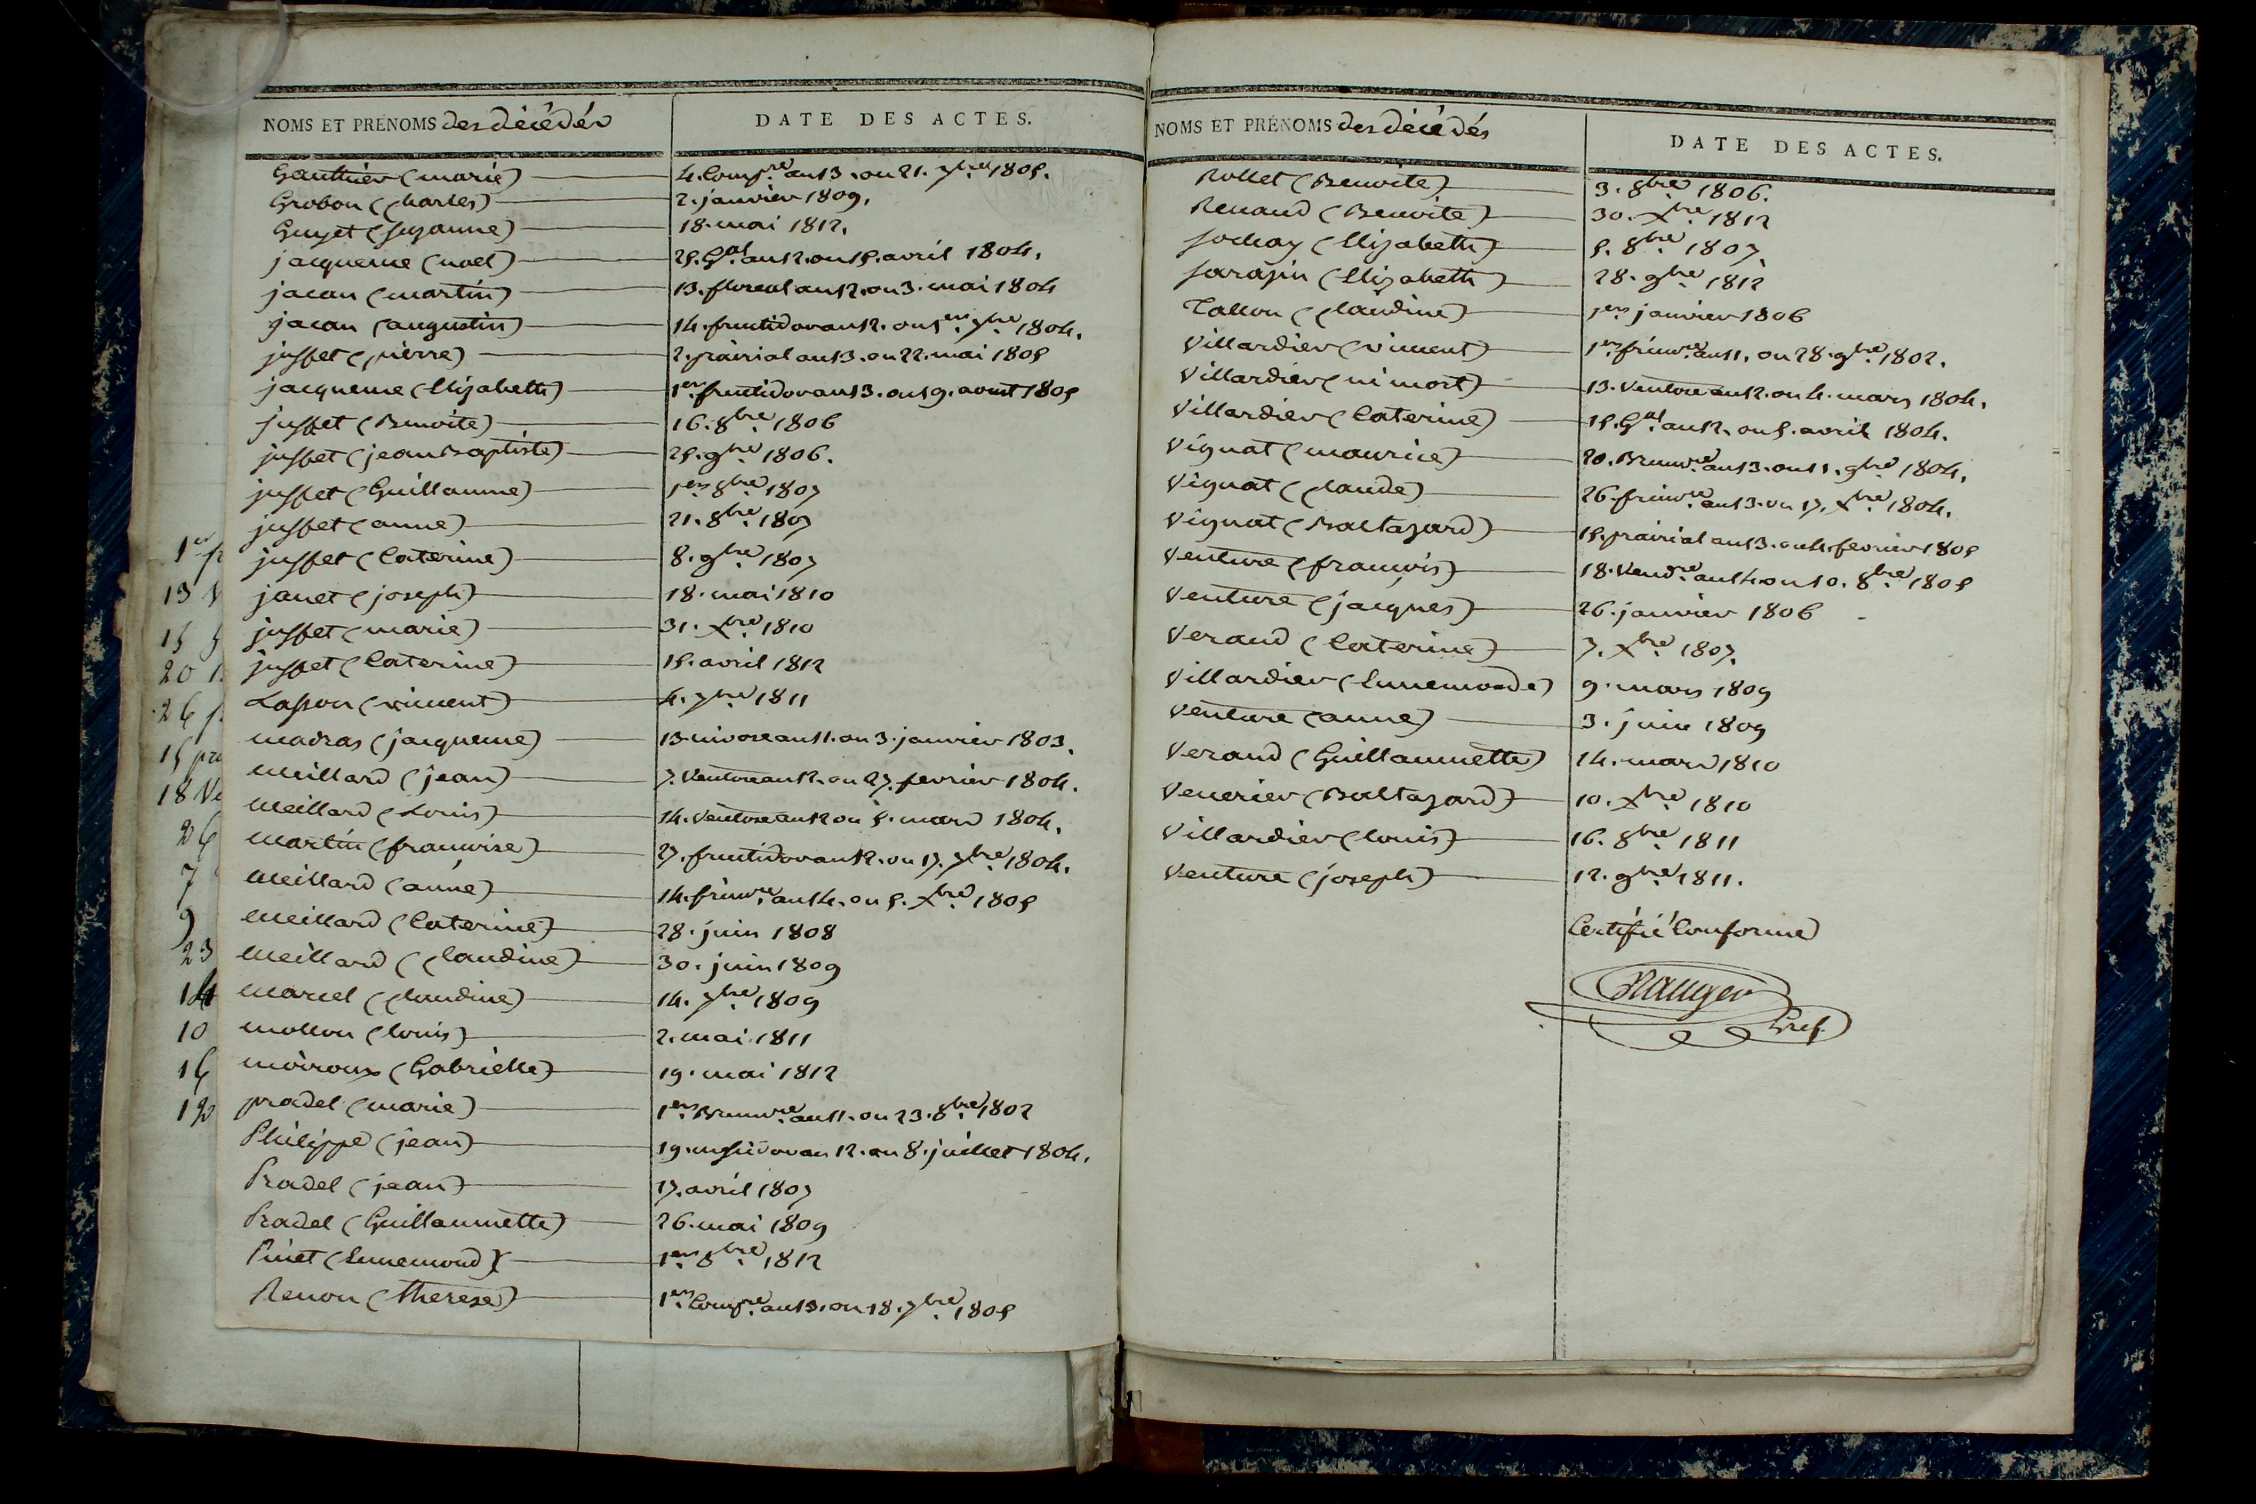 NOMS ET PRÉNOMS des décédés DATE DES ACTES.
Gauthier (marie) 4. Compre an 13. ou 21. 7bre 1805.
Grobon (Charles) 2. janvier 1809.
Guyet (suzanne) 18. mai 1812.
jacqueme (noel) 25. Gal an 12. ou 15. avril 1804.
jacan (martin) 13. floreal an 12. ou 3. mai 1804
jacan (augustin) 14. fructidor an 12. ou 1er 7bre 1804.
juffet (pierre) 2. prairial an 13. ou 22. mai 1805
jacqueme (Elizabeth) 1er fructidor an 13. ou 19. aout 1805
juffet (Benoite) 16. 8bre 1806
juffet (jean Baptiste) 25. 9bre 1806.
juffet (Guillaume) 1er 8bre 1807
juffet (anne) 21. 8bre 1807
juffet (Caterine) 8. 9bre 1807
janet (joseph) 18. mai 1810
juffet (marie) 31. Xbre 1810
juffet (Caterine) 15. avril 1812
Lasson (vincent) 4. 7bre 1811
madras (jacqueme) 13. nivose an 11. ou 3. janvier 1803.
Meillard (jean) 7. Ventose an 12. ou 27. fevrier 1804.
Meillard (Louis) 14. Ventose an 12 ou 5. mars 1804.
Martin (francoise) 27. fructidor an 12. ou 17. 7bre 1804.
Meillard (anne) 14. frimre an 14. ou 5. Xbre 1805
Meillard (Caterine) 28. juin 1808
Meillard (Claudine) 30. juin 1809
Marcel (Claudine) 14. 7bre 1809
Mollon (Louis) 2. mai 1811
moiroux (Gabrielle) 19. mai 1812
pradel (marie) 1er Brumre an 11. ou 23. 8bre 1802
Philippe (jean) 19. messidor an 12. ou 8. juillet 1804.
Pradel (jean) 17. avril 1807
Pradel (Guillaumette) 26. mai 1809
Pinet (Ennemond) 1er 8bre 1812
Renon (therese) 1er Compre an 13. ou 18. 7bre 1805
1er
13 V
15 g
20
26
15 pra
18 Ve
26
7
9
23
14
10
16
12
NOMS ET PRÉNOMS des décédés DATE DES ACTES.
Rollet (Benoite) 3. 8bre 1806.
Renaud (Benoite) 30. Xbre 1812
Sochay (Elizabeth) 5. 8bre 1807
Sarazin (Elizabeth) 28. 9bre 1812
Tallon (Claudine) 1er janvier 1806
Villardier (vincent) 1er frimre an 11. ou 28. 9bre 1802.
Villardier (ni mort) 13. Ventose an 12. ou 4. mars 1804.
Villardier (Caterine) 15. Gal an 12. ou 5. avril 1804.
Vignat (maurice) 20. Brumre an 13. ou 11. 9bre 1804.
Vignat (Claude) 26. frimre an 13. ou 17. Xbre 1804.
Vignat (Baltazard) 15. prairial an 13. ou 4. fevrier 1805
Venture (francois) 18. Vendre an 14. ou 10. 8bre 1805
Venture (jacques) 26. janvier 1806
Veraud (Caterine) 7. Xbre 1807.
Villardier (Ennemonde) 9. mars 1809
Venture (anne) 3. juin 1809
Veraud (Guillaumette) 14. mars 1810
Venerier (Baltazard) 10. Xbre 1810
Villardier (louis) 16. 8bre 1811
Venture (joseph) 12. 9bre 1811.
Certifié Conforme
Gref.